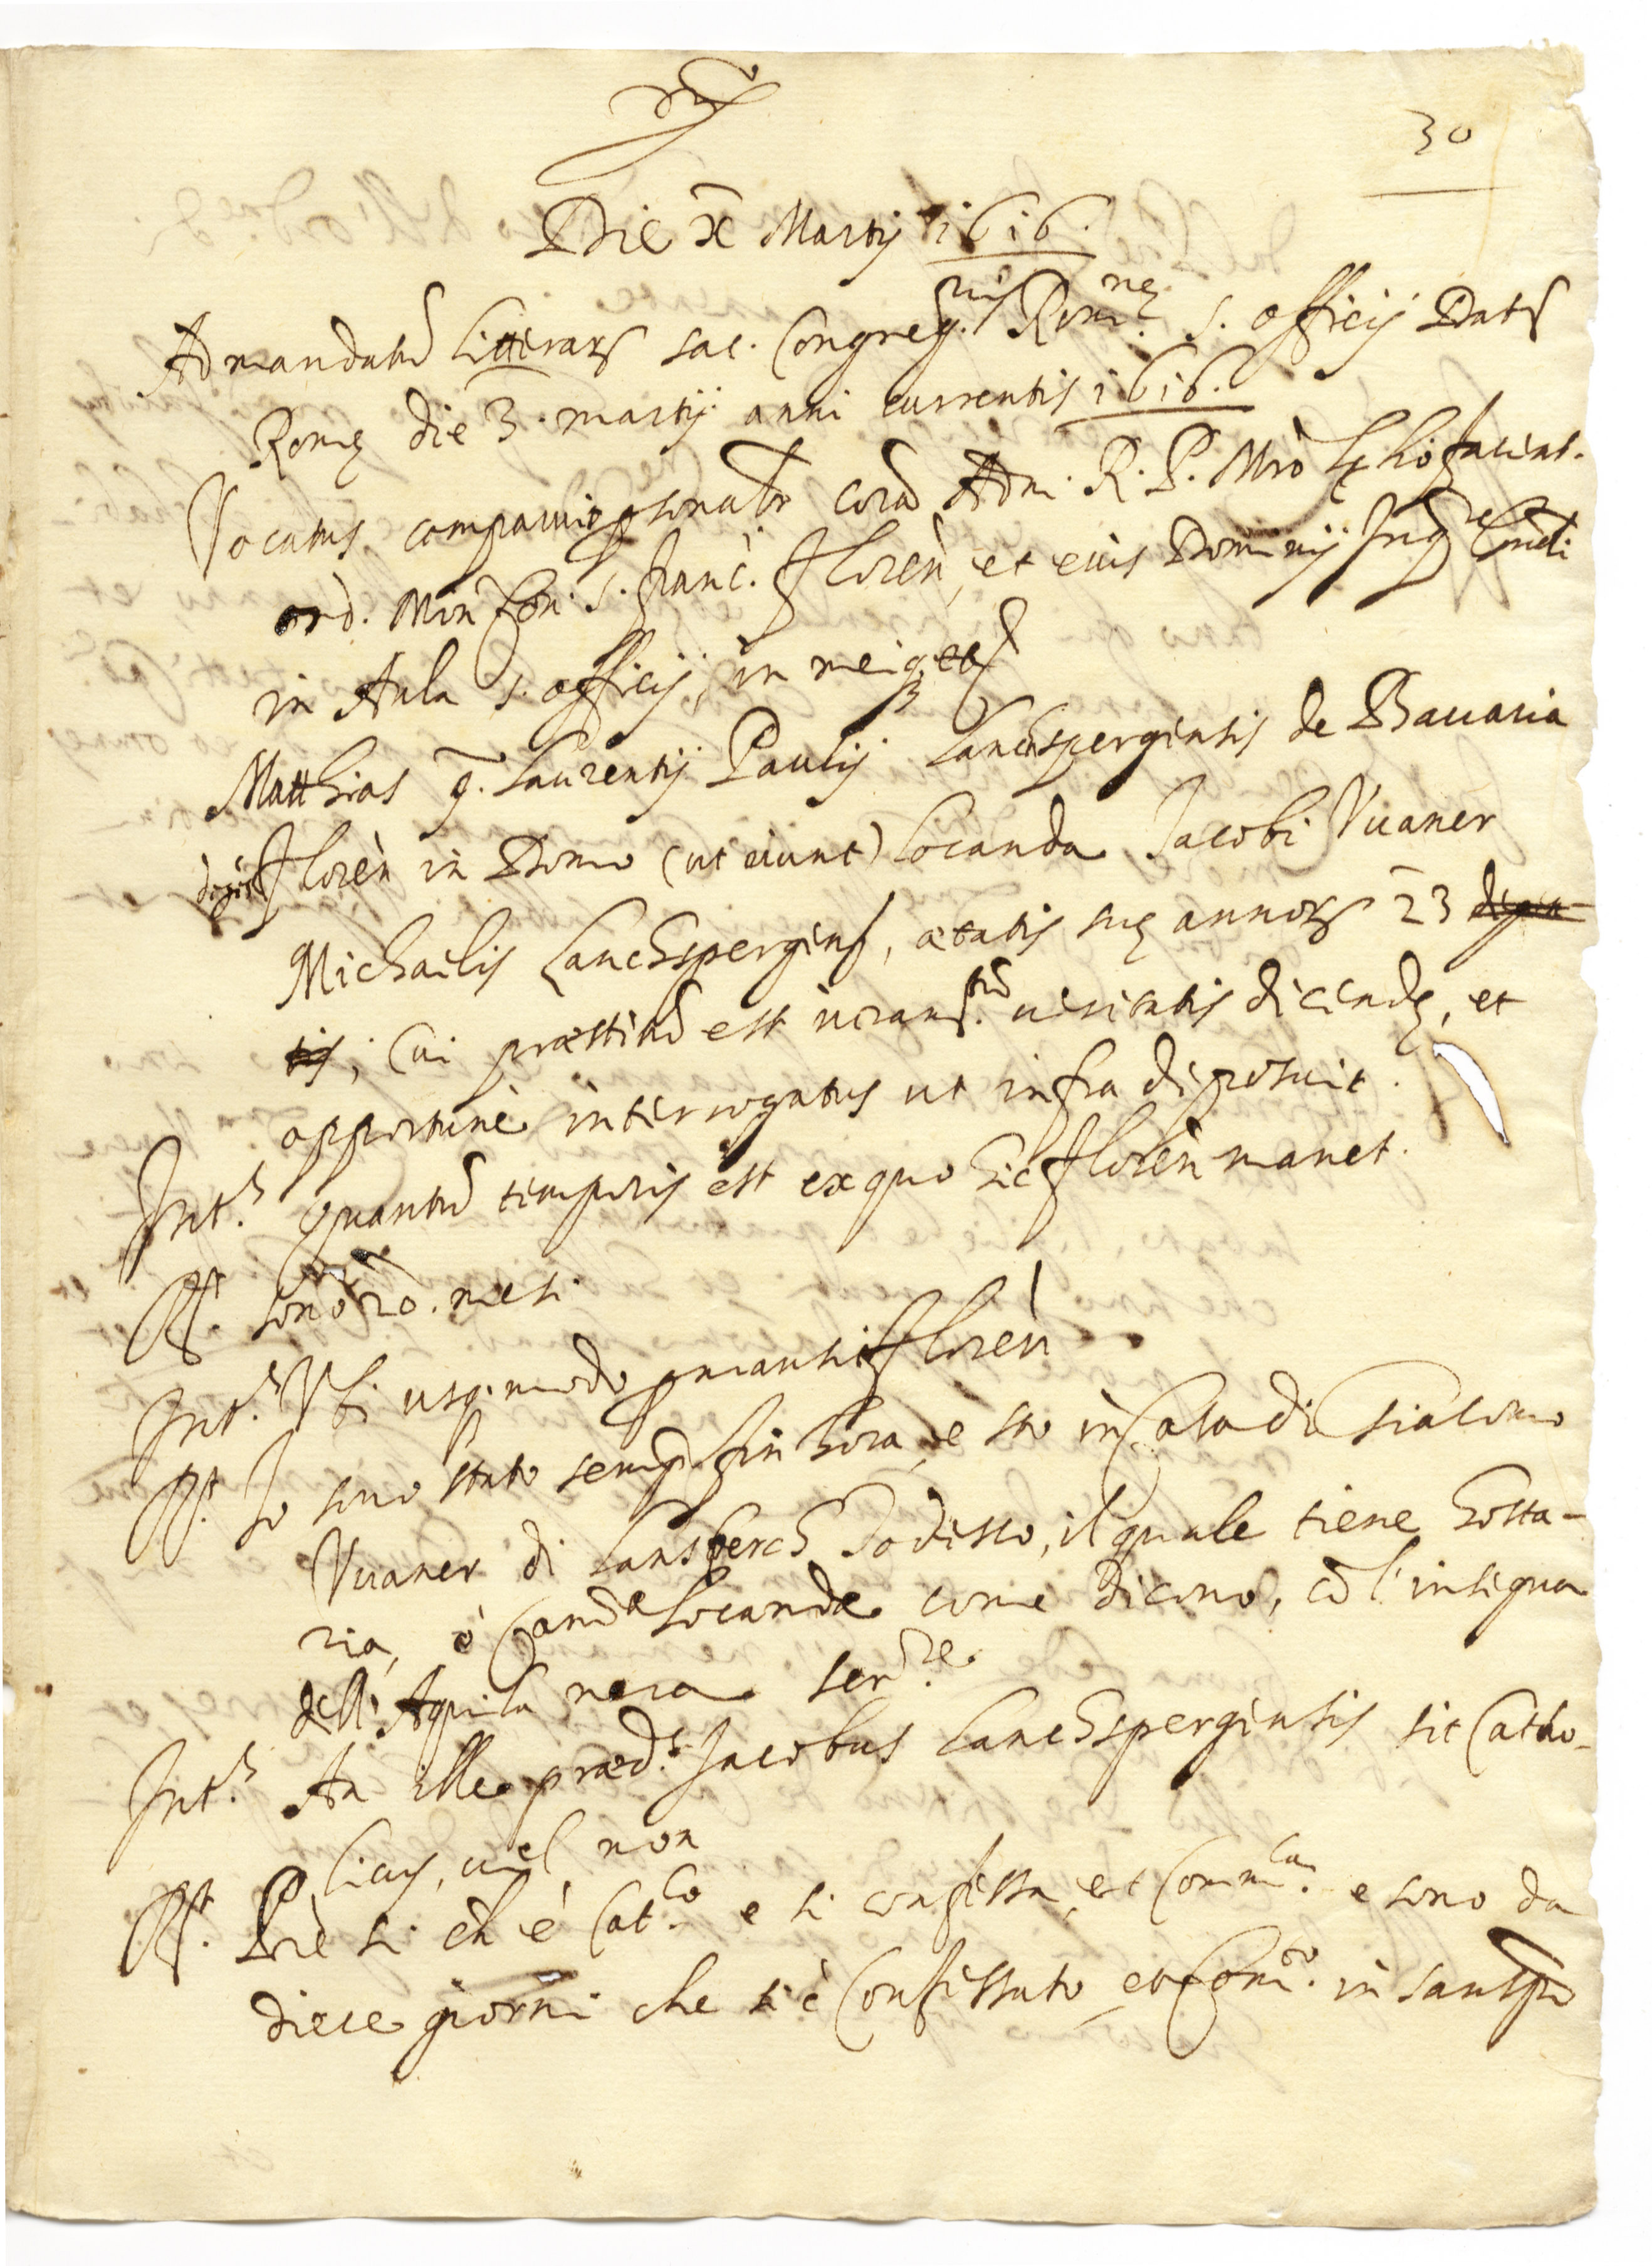 30
Die X Martij 1616.
Ad mandatũ litterarũ sac. Congreg.nis Rom.nę s. officij Datũ
Romę die 3. martij anni currentis 1616.
Vocatus comparuit psonalr corã Adm. R. P. Mrõ
ord. Min. Con. s. franc. Floreñ, et eius Dominij Inqre Gñali
in Aula s. officij, in meiq. etc
Matthias q. Laurentij Paulij Lanchspergensis de Bauaria
Floreñ in Domo (ut aiunt) locanda Jacobi Vuaner
Michaelis Lanchspergens, ætatis suę annorũ 23
cui præstitũ est iuram.tũ veritatis dicendę, et
opportunè interrogatus ut infra deposuit.
Int.s Quantũ temporis est ex quo hic Floreñ manet.
Rt. sono 20. mesi
Int.s Vbi usq. modo pmansit Floreñ
Rt. Io sono stato semp. fin hora, e sto in Casa di Giacomo
Vuaner di Lansberch Todesco, il quale tiene hosta-
ria, ò Camᵉ locande come dicono, cõ l'insegna
dell'Aquila nera sem.re
Int.s An ille præd.s Jacobus Lanchspergensis sit Catho-
licus, uel non
Rt. Pre si ch è Cat.co e si confessa, et Comm.ca e sono da
diece giorni che si è Confessato et Com.to in